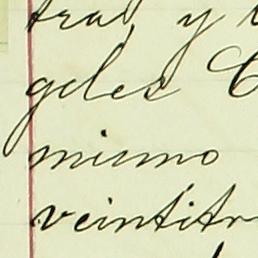 tra, y
geles C
mismo
veintitr